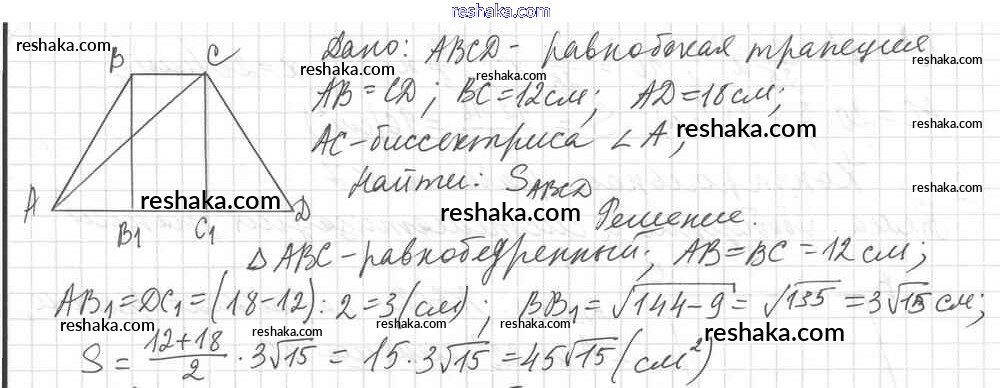 reshaka.com
reshaka.com
B C Дано: ABCD - равнобокая трапеция
reshaka.com reshaka.com
AB = CD; BC = 12 см; AD = 18 см;
reshaka.com
AC - биссектриса ∠ A; reshaka.com
Найти: S_ABCD
reshaka.com reshaka.com
A B₁ C₁ D Решение.
Δ ABC - равнобедренный; AB = BC = 12 см;
reshaka.com reshaka.com
AB₁ = DC₁ = (18 - 12) : 2 = 3 (см); BB₁ = √144 - 9 = √135 = 3√15 см;
reshaka.com reshaka.com reshaka.com reshaka.com
S = 12 + 18 / 2 · 3√15 = 15 · 3√15 = 45√15 (см²)
reshaka.com reshaka.com reshaka.com